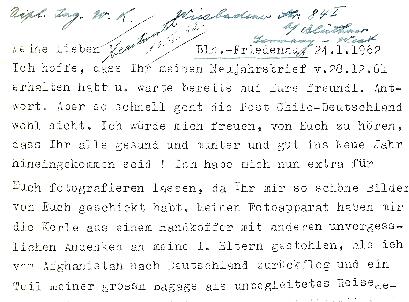 Dipl. Ing. W. K. Wiesbadener Str. 84 I
Germany - West
Meine Lieben Bln.-Friedenau, 24.1.1962
Ich hoffe, dass Ihr meinen Neujahrsbrief v.28.12.61
erhalten habt u. warte bereits auf Eure freundl. Ant-
wort. Aber so schnell geht die Post Chile-Deutschland
wohl nicht. Ich würde mich freuen, von Euch zu hören,
dass Ihr alle gesund und munter und gut ins neue Jahr
hineingekommen seid ! Ich habe mich nun extra für
Euch fotografieren lassen, da Ihr mir so schöne Bilder
von Euch geschickt habt. Meinen Fotoapparat haben mir
die Kerle aus einem Handkoffer mit anderen unvergess-
lichen Andenken an meine l. Eltern gestohlen, als ich
von Afghanistan nach Deutschland zurückflog und ein
Teil meiner grossn Bagage als unbegleitetes Reisege-